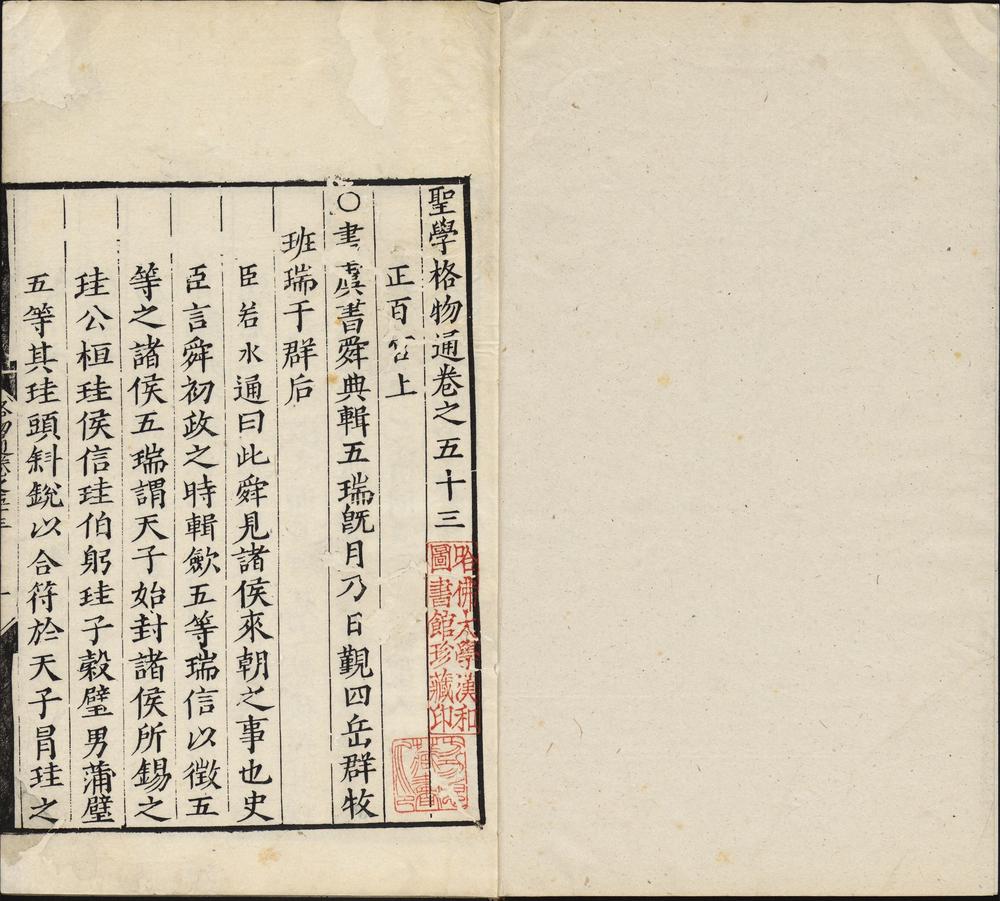 聖學格物通卷之五十三
正百官上
○書虞書舜典輯五瑞旣月乃日覲四岳群牧
班瑞于群后
臣若水通曰此舜見諸侯來朝之事也史
臣言舜初政之時輯斂五等瑞信以徵五
等之諸侯五瑞謂天子始封諸侯所錫之
珪公桓珪侯信珪伯躬珪子糓璧男蒲璧
五等其珪頭斜銳以合符於天子冐珪之
哈佛大學漢和
圖書館珍藏印